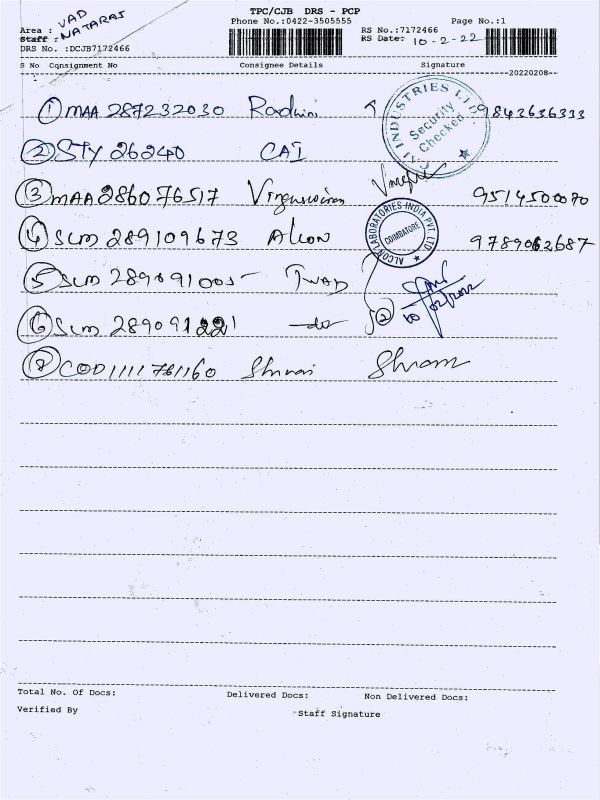 TPC/CJB DRS - PCP
Phone No.:0422-3505555 Page No.:1
Area : VAD
Staff : NATARAJ
RS No.:7172466
RS Date: 10-2-22
DRS No. :DCJB7172466
S No Consignment No Consignee Details Signature
--20220208--
① MAA 287232030 9843636333
② STY 26240 CAI
CAI INDUSTRIES LTD. Security Checked
③ MAA 286076517 9514500070
④ SLM 289109673 Alcon 9789062687
ALCON LABORATORIES INDIA PVT. LTD. COIMBATORE
⑤ SLM 289091005 TWAD
⑥ SLM 289091221 —do—
⑦ COD1111761160
Total No. Of Docs: Delivered Docs: Non Delivered Docs:
Verified By Staff Signature